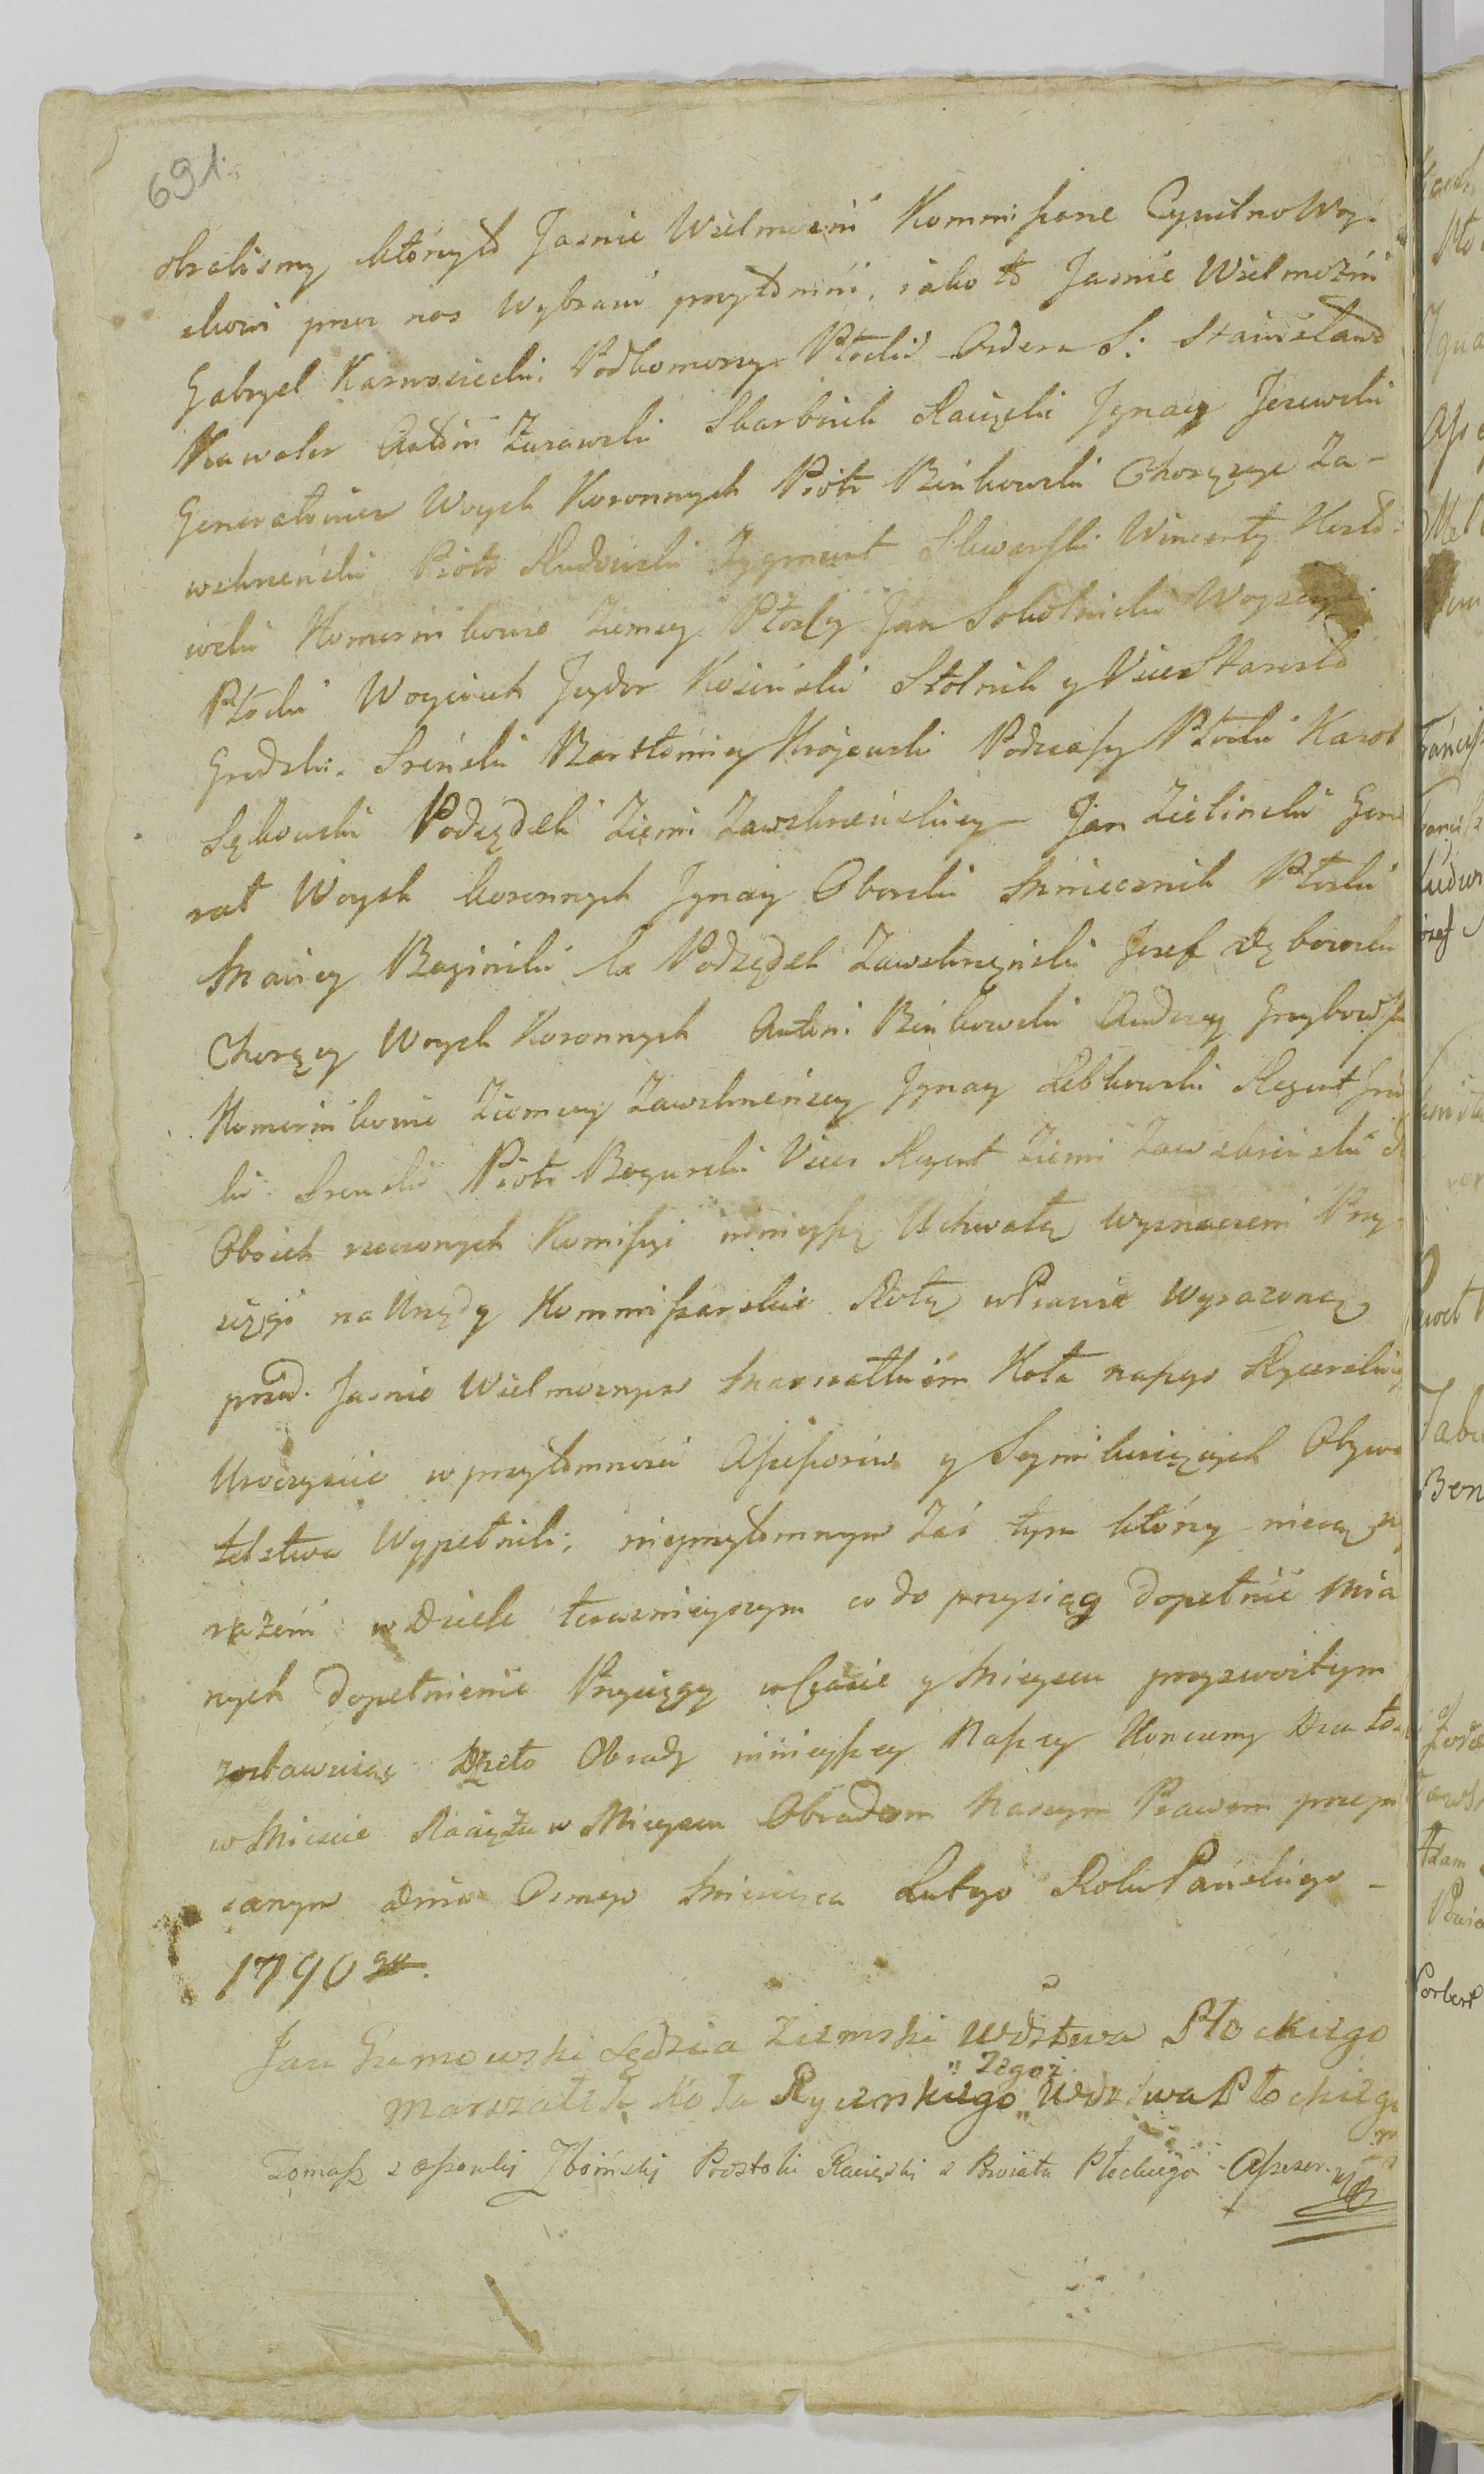 691.
obraliśmy którzyto Jaśnie Wielmożni Kommissarze Cywilno Woy-
skowi przez nas Wybrani przytomni, iako to Jaśnie Wielmożni
Gabryel Karwosiecki Podkomorzy Płocki Orderu S: Stanisława
Kawaler Antoni Zurawski Skarbnik Raciązki Jgnacy Jezewski
Generał Woysk Koronnych Piotr Bieńkowski Chorązyc Za-
wskrzeński Piotr Rudowski Zygmunt Skwarski Wincenty
Komornikowie Ziemscy Płoccy Jan Sokolnicki Woyski
Płocki Woyciech Jzydor Kosiński Stolnik y ViceStarosta
Grodzki Sreński Bartłomiey Kraiewski Podczaszy Płocki Karol
Sękowski Podsędek Ziemi Zawskrzeńskiey Jan Zieliński Gene
rał Woysk koronnych Jgnacy Oborski Miecznik Płocki
Maciey Baginski Ex Podsędek Zawskrzyński Jozef Dęborski
Chorązy Woysk Koronnych Antoni Bieńkowski Andrzey Grzybowski
Komornikowie Ziemscy Zawskrzeńscy Jgnacy Lebkowski Regent Grodz
ki Srenski Piotr Bogurski Vice Regent Ziemi Zawskrzeński
Oboich rzeczonych Komissyi ninieyszą Uchwałą wyznaczeni Przy-
sięgi na Urzędy Kommissarskie Rotą w Prawie wyrazoną
przed Jasnie Wielmoznym Marszałkiem Koła naszego Rycerskiego
Uroczyscie w przytomności Assessorów y Seymikuiących Obywa
telstwa Wypełnili; nieprzytomnym Zaś tym którzy
razem w Dziele teraznieyszym co do przysiąg dopełnić Mia
nych dopełnienie Przysięgy w Czasie y Mieyscu przyzwoitym
zostawuiąc Dzieło Obrady ninieyszey Naszey Konczemy Działo
w Miescie Raciążu w Mieyscu Obradom Naszym Prawem przepi
sanym dnia Osmego Miesiąca Lutego Roku Pańskiego -
1790 go.
Jan Gumowski Sędzia Ziemski Wdztwa Płockiego
Marszałek Koła Rycerskiego „Tegoż„ Wdztwa Płockiego
Tomasz z Ossowki Zboiński Podstoli Raciązki z Powiatu Płockiego Assesor mp